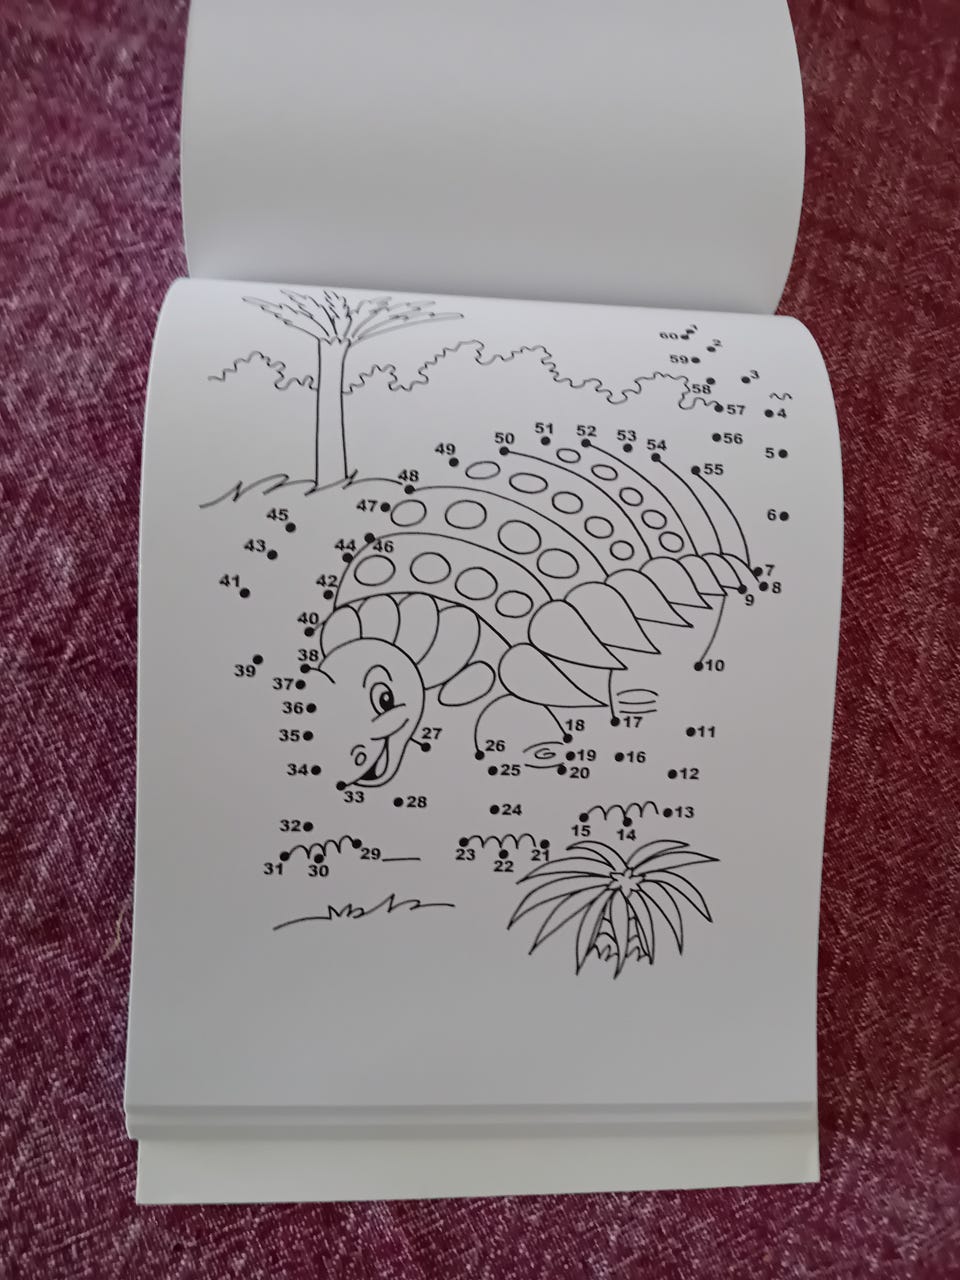 60 1
2
59
3
58
57
4
51 52
50 53
56
54
49
5
55
48
47
45
6
46
44
43
7
42
41
8
9
40
38
39
10
37
36
18 17
35
27
11
26
19 16
34
25 20
12
33
28
24
13
32
15 14
29
23 21
31 30
22